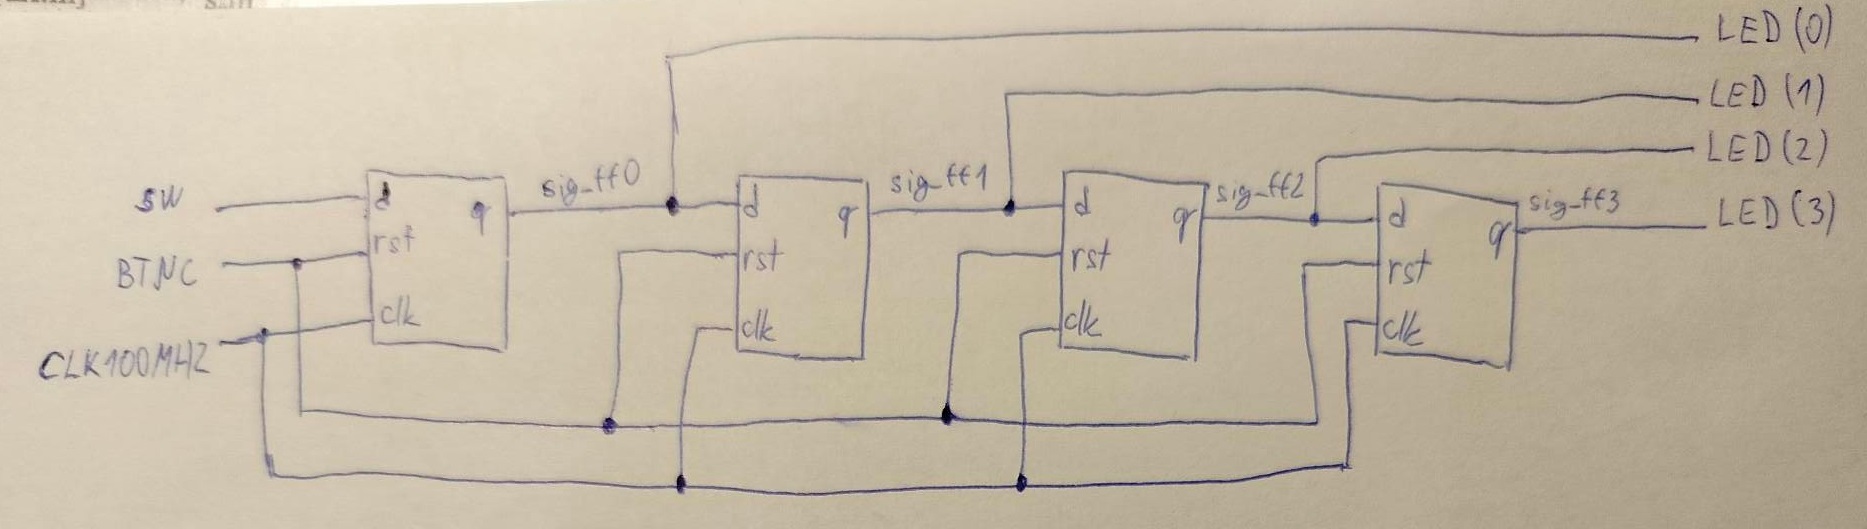 LED (0)
LED (1)
LED (2)
LED (3)
SW
BTNC
CLK100MHZ
d
rst
clk
q
sig_ff0
d
rst
clk
q
sig_ff1
d
rst
clk
q
sig_ff2
d
rst
clk
q
sig_ff3